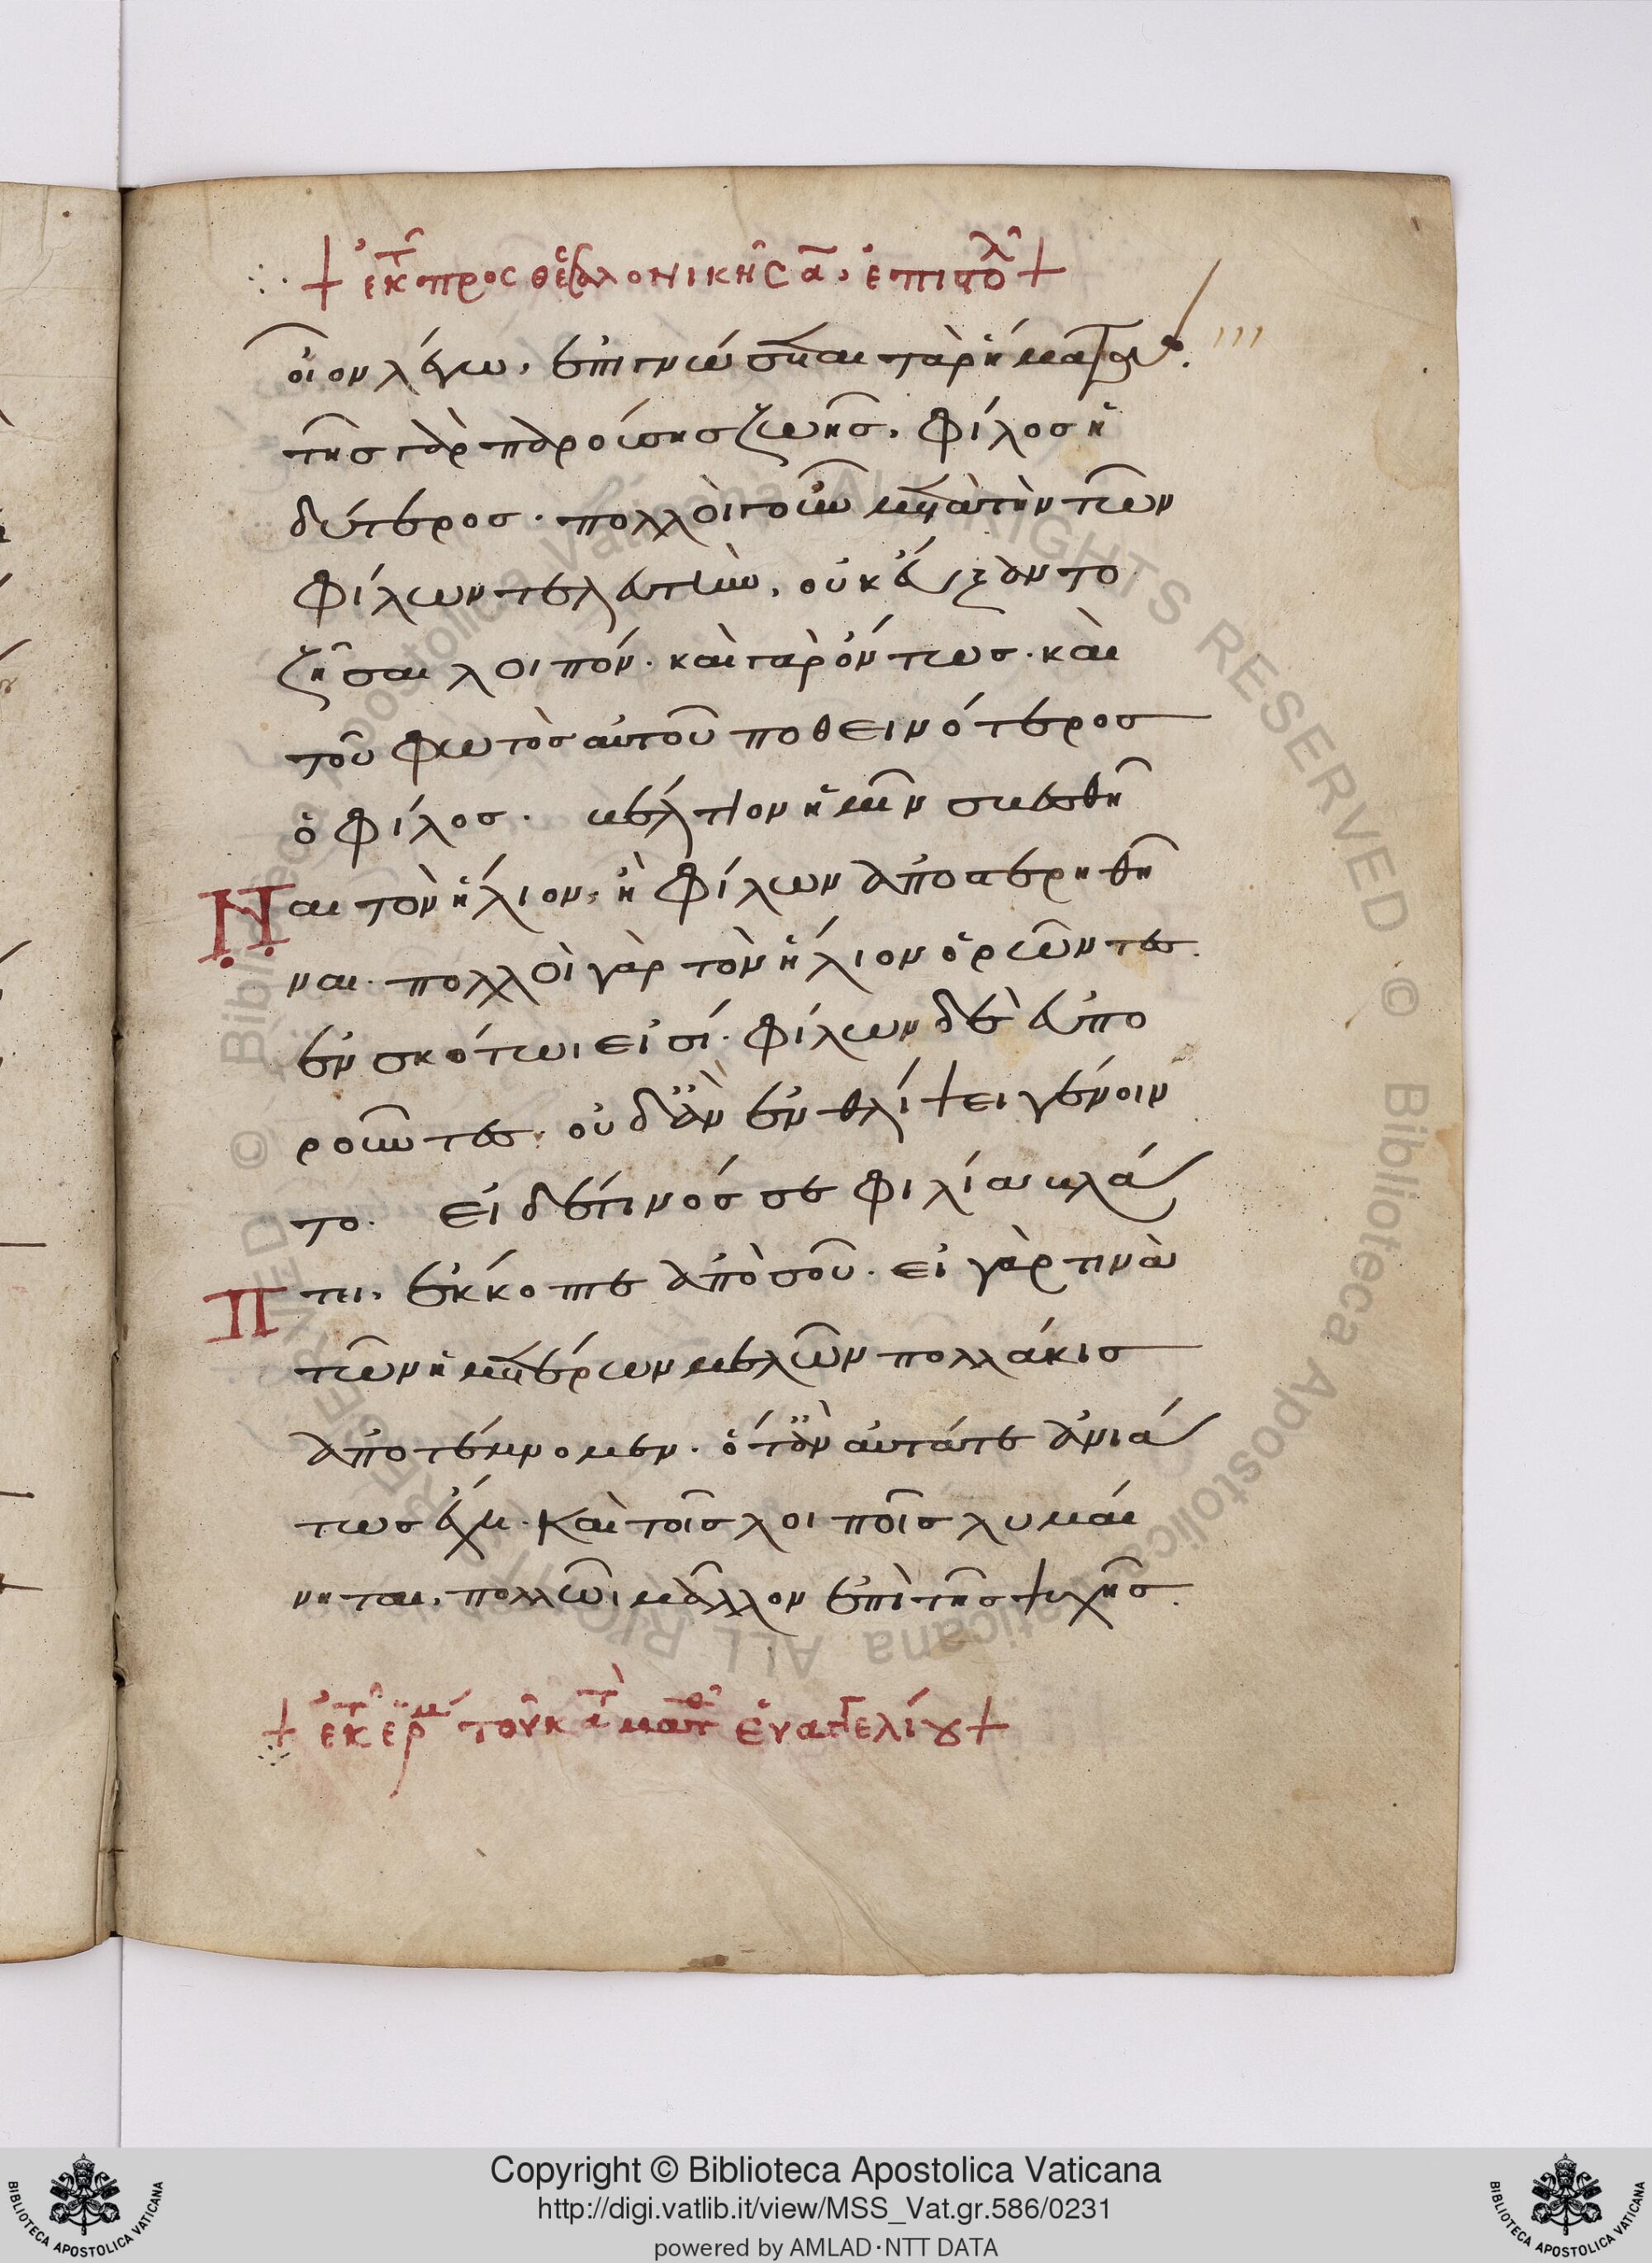 + ἐκ τ πρὸς θεσσαλονικῆς α. ἐπιστολ +
οἷον λέγω, ἐπιγνώσεται τὰ ῥήματά μου.
τῆς γὰρ παρούσης ζωῆς, φίλος ἡ
δύτερος. πολλοὶ γοῦν μετὰ τὴν τῶν
φίλων τελευτὴν, οὐκ εὔξαντο
ζῆσαι λοιπόν. καὶ γὰρ ὄντως. καὶ
τοῦ φωτὸς αὐτοῦ ποθεινότερος
ὁ φίλος. βέλτιον ἡμῖν σβεσθῆ
ναι τὸν ἥλιον, ἢ φίλων ἀποστερηθῆ
ναι. πολλοὶ γὰρ τὸν ἥλιον ὁρῶντες.
ἐν σκότωι εἰσί. φίλων δὲ εὐπο
ροῦντες. οὐδ' ἂν ἐν θλίψει γένοιν
το. εἰ δέ τινός σε φιλία βλά
πτει, ἔκκοπτε ἀπὸ σοῦ. εἰ γάρ τινα
τῶν ἡμετέρων μελῶν πολλάκις
ἀποτέμνομεν. ὅτ' ἂν αὐτά τε ἀνιά
τως ἔχη. καὶ τοῖς λοιποῖς λυμαί
νηται, πολλῶι μᾶλλον ἐπὶ τῆς ψυχῆς.
+ ἐκ τ ἑρμ τοῦ κατὰ ματθ εὐαγγελίου +
Copyright © Biblioteca Apostolica Vaticana
http://digi.vatlib.it/view/MSS_Vat.gr.586/0231
powered by AMLAD·NTT DATA
BIBLIOTECA APOSTOLICA VATICANA
BIBLIOTECA APOSTOLICA VATICANA
© Biblioteca Apostolica Vaticana ALL RIGHTS RESERVED © Biblioteca Apostolica Vaticana ALL RIGHTS RESERVED